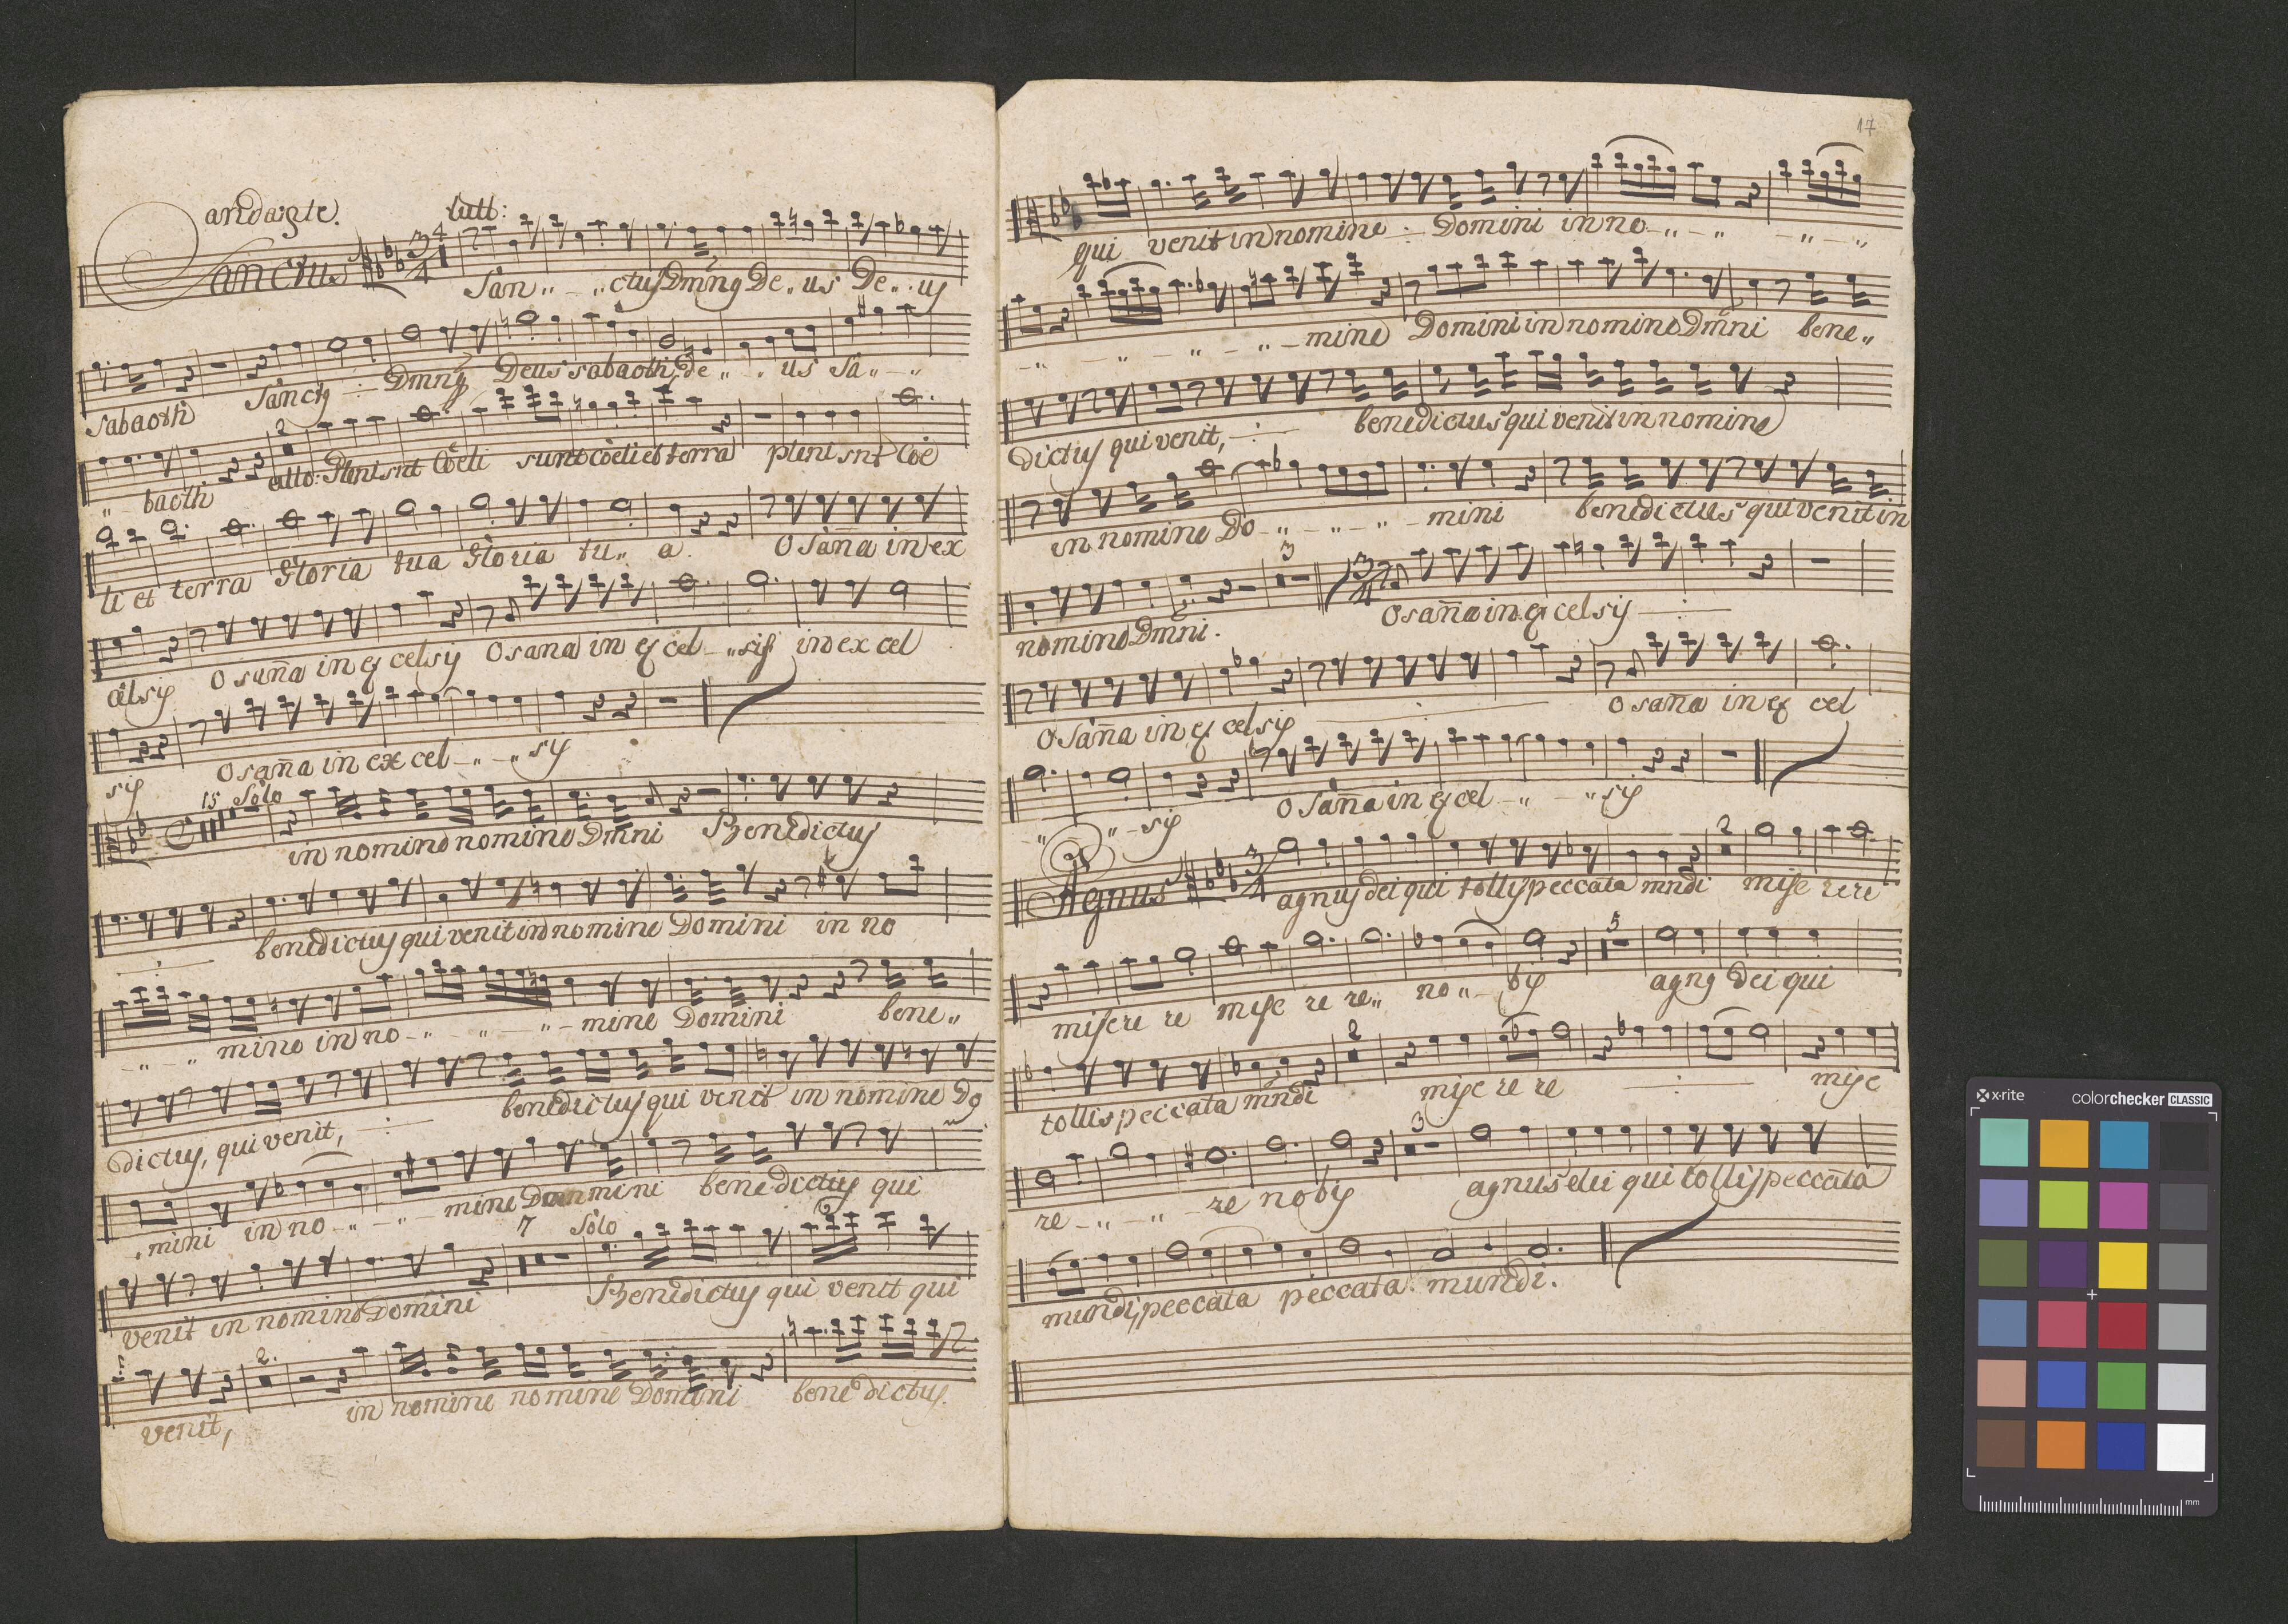 andante.
tutt:
Sanctus 3/4 4 San„ - „ctus Dmng De„us De„us
Sabaoth Sanctg Dmng Deus sabaoth, de„ „us Sa„-„
2
„ baoth allo: Pleni snt Coeli sunt coeli et terra pleni snt Coe
li et terra Gloria tua Gloria tu„ a. O Sana in ex
celsis O sana in ex celsis O sana in ex cel-„sis in ex cel
sis O sana in ex cel-„-„sis
15 Solo
in nomine nomine Dmni Benedictus
benedictus qui venit in nomine Domini in no
-„-„ mine in no-„-„-„-mine Domini bene„
dictus, qui venit, benedictus qui venit in nomine Do
„mini in no-„-„-mine Domini benedictus qui
7 Solo
venit in nomine Domini Benedictus qui venit qui
2.
venit, in nomine nomine Domini benedictus.
17
qui venit in nomine Domini in no-„-„ -„-„
-„ -„ „-„-mine Domini in nomine Dmni bene„
dictus qui venit, benedictus qui venit in nomine
in nomine Do-„-„-„-mini benedictus qui venit in
3 3/4
nomine Dmni. O sana in ex celsis
O Sana in ex celsis O sana in ex cel
„ „-sis O Sana in ex cel-„-„sis
2
Agnus 3/4 agnus dei qui tollis peccata mndi mise rere
5
misere re mise re re„ no„-bis agng Dei qui
2
tollis peccata mndi mise re re mise
3
re-„-„-re nobis agnus dei qui tollis peccata
mundi, peccata peccata mundi.
x·rite colorchecker CLASSIC
mm